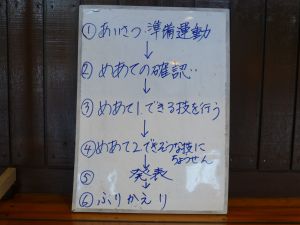 ①あいさつ・準備運動
↓
②めあての確認
↓
③めあて1.できる技を行う
↓
④めあて2できそうな技に
ちょうせん
↓
⑤発表
↓
⑥ふりかえり